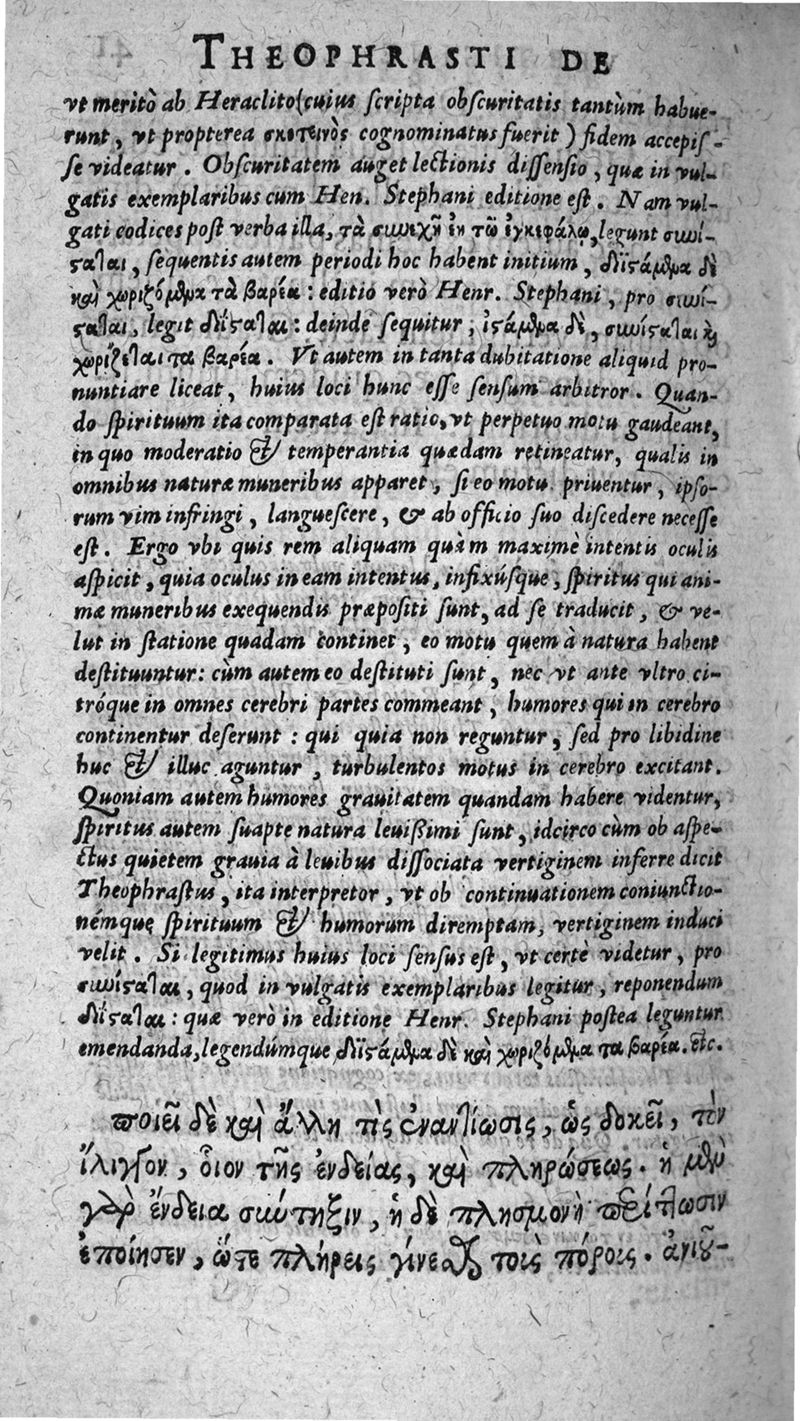 THEOPHRASTI DE
vt meritò ab Heraclito (cuius scripta obscuritatis tantùm habue-
runt, vt propterea σκοτεινὸς cognominatus fuerit) fidem accepiſ-
ſe videatur. Obſcuritatem auget lectionis diſſenſio, quæ in vul-
gatis exemplaribus cum Hen. Stephani editione eſt. Nam vul-
gati codices poſt verba illa, τὰ συνεχῆ ἐν τῷ ἐγκεφάλῳ, legunt συνί-
ςαται, ſequentis autem periodi hoc habent initium, διϊςάμενα δὲ
καὶ χωριζόμενα τὰ βαρέα: editio verò Henr. Stephani, pro συνί-
ςαται, legit διΐςαται: deinde ſequitur, ἱςάμενα δὲ, συνίςαται κ̀
χωρίζεται τα βαρέα. Vt autem in tanta dubitatione aliquid pro-
nuntiare liceat, huius loci hunc eſſe ſenſum arbitror. Quan-
do ſpirituum ita comparata eſt ratio, vt perpetuo motu gaudeant,
in quo moderatio & temperantia quædam retineatur, qualis in
omnibus naturæ muneribus apparet, ſi eo motu priuentur, ipſo-
rum vim infringi, langueſcere, & ab officio ſuo diſcedere neceſſe
eſt. Ergo vbi quis rem aliquam quàm maximè intentis oculis
aſpicit, quia oculus in eam intentus, infixúſque, ſpiritus qui ani-
mæ muneribus exequendis præpoſiti ſunt, ad ſe traducit, & ve-
lut in ſtatione quadam continet, eo motu quem à natura habent
deſtituuntur: cùm autem eo deſtituti ſunt, nec vt ante vltro ci-
tróque in omnes cerebri partes commeant, humores qui in cerebro
continentur deſerunt: qui quia non reguntur, ſed pro libidine
huc & illuc aguntur, turbulentos motus in cerebro excitant.
Quoniam autem humores grauitatem quandam habere videntur,
ſpiritus autem ſuapte natura leuißimi ſunt, idcirco cùm ob aſpe-
ctus quietem grauia à leuibus diſſociata vertiginem inferre dicit
Theophraſtus, ita interpretor, vt ob continuationem coniunctio-
némque ſpirituum & humorum diremptam, vertiginem induci
velit. Si legitimus huius loci ſenſus eſt, vt certè videtur, pro
συνίςαται, quod in vulgatis exemplaribus legitur, reponendum
διΐςαται: quæ verò in editione Henr. Stephani poſtea leguntur
emendanda, legendúmque διϊςάμενα δὲ καὶ χωριζόμενα τα βαρέα. &c.
ποιεῖ δὲ καὶ ἄλλη τὶς ἐναντίωσις, ὡς δοκεῖ, τὸν
ἴλιγγον, οἷον τῆς ἐνδείας, καὶ πληρώσεως. ἡ μὲν
γὰρ ἔνδεια σύντηξιν, ἡ δὲ πλησμονὴ περίπτωσιν
ἐποίησεν, ὥςε πλήρεις γίνεσθαι τοὶς πόροις. ἀνιοῦ-